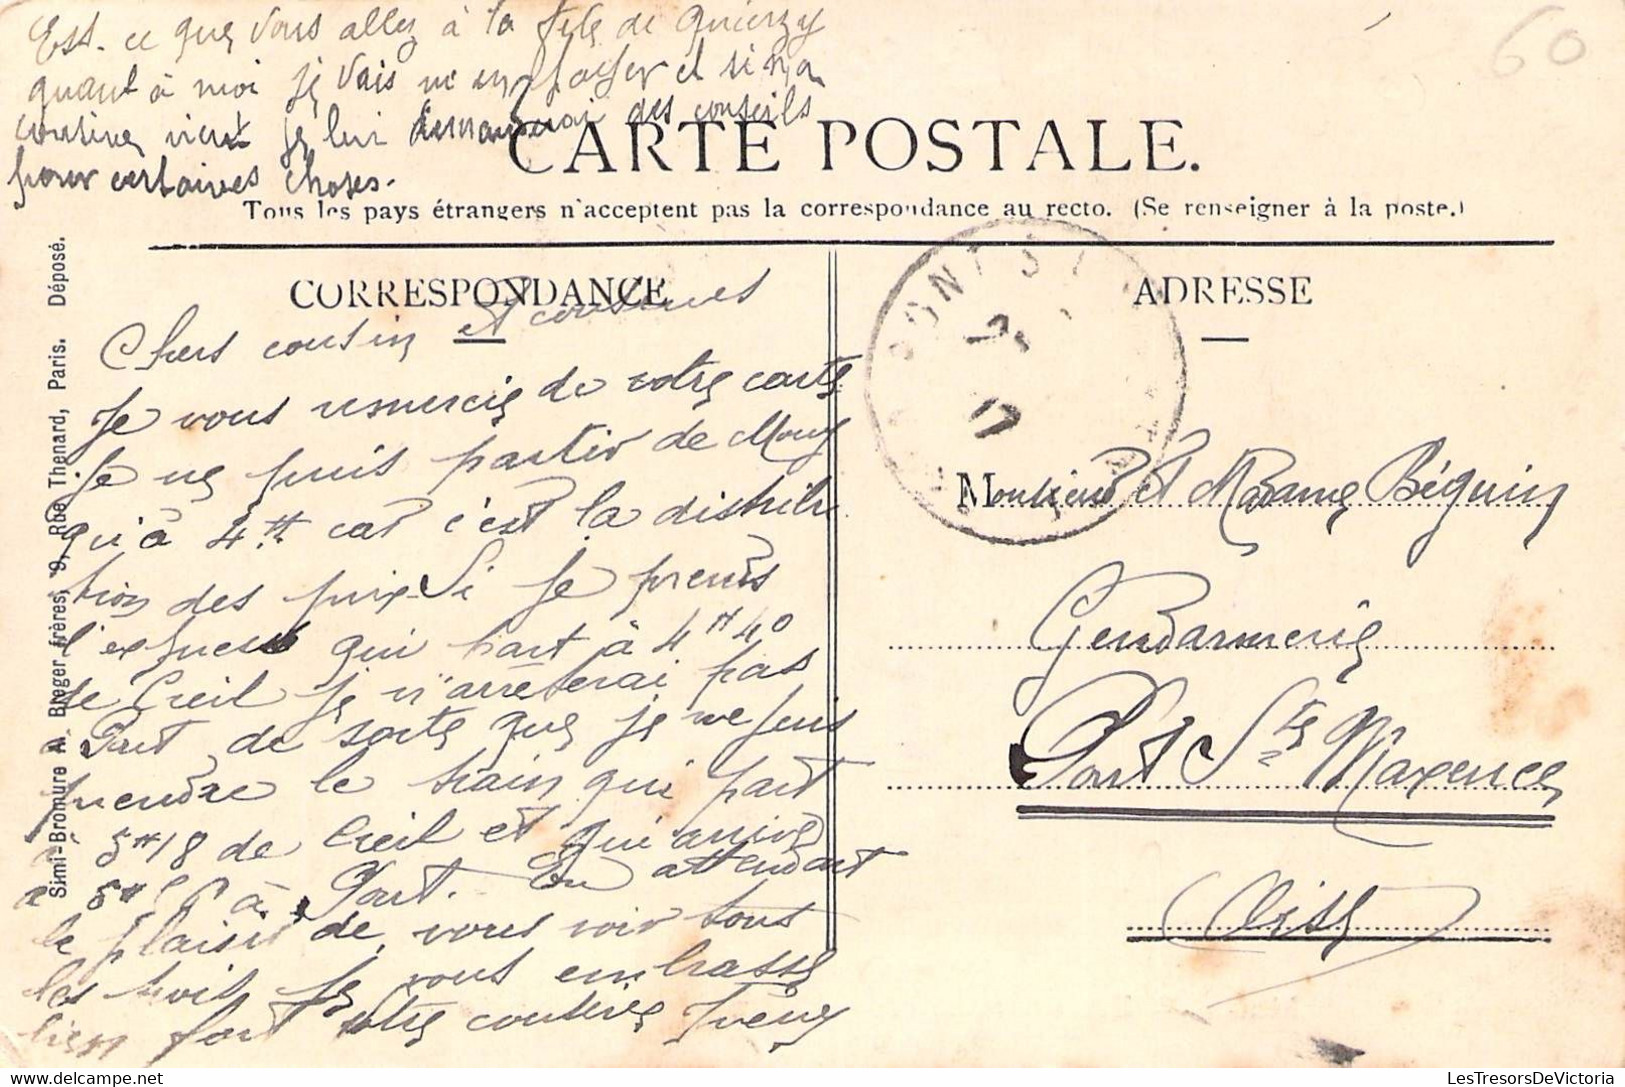 Est-ce que vous allez à la fete de Quierzy
quant à moi je vais m'en passer et si ma
cousine vient je lui demanderai des conseils
pour certaines choses.
60
CARTE POSTALE.
Tous les pays étrangers n'acceptent pas la correspondance au recto. (Se renseigner à la poste.)
CORRESPONDANCE
Chers cousin et cousines
Je vous remercie de votre carte
Je ne puis partir de Mouy
qu'à 4H car c'est la distribu
tion des prix. Si je prends
l'express qui part à 4H40
de Creil je n'arrêterai pas
à Pont de sorte que je ne puis
prendre le train qui part
à 5H18 de Creil et qui arrive
à 5H à Pont. En attendant
le plaisir de vous voir tous
les trois je vous embrasse
bien fort votre cousine Irène
Simi-Bromure A. Breger frères, 9, Rue Thenard, Paris. Déposé.
PONT-ST
17
ADRESSE
Monsieur et Madame Béguin
Gendarmerie
Pont Ste Maxence
Oise
LesTresorsDeVictoria